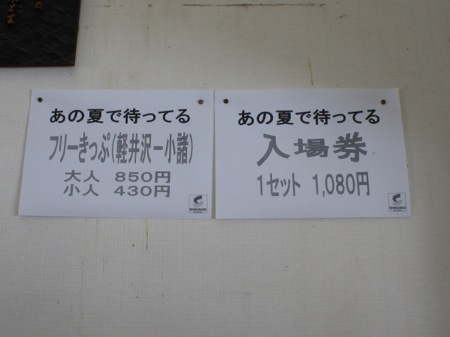 あの夏で待ってる
フリーきっぷ(軽井沢ー小諸)
大人 850円
小人 430円
あの夏で待ってる
入場券
1セット 1,080円